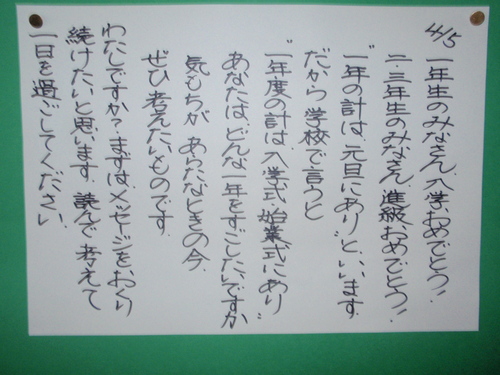 4/5
一年生のみなさん、入学おめでとう！
二・三年生のみなさん、進級おめでとう！
"一年の計は、元旦にあり"といいます。
だから 学校で言うと
"一年度の計は、入学式・始業式にあり"
あなたは、どんな一年をすごしたいですか
気もちが あらたなときの今、
ぜひ 考えたいものです。
わたしですか？まずは、メッセージをおくり
続けたいと思います。読んで 考えて
一日を過ごしてください。